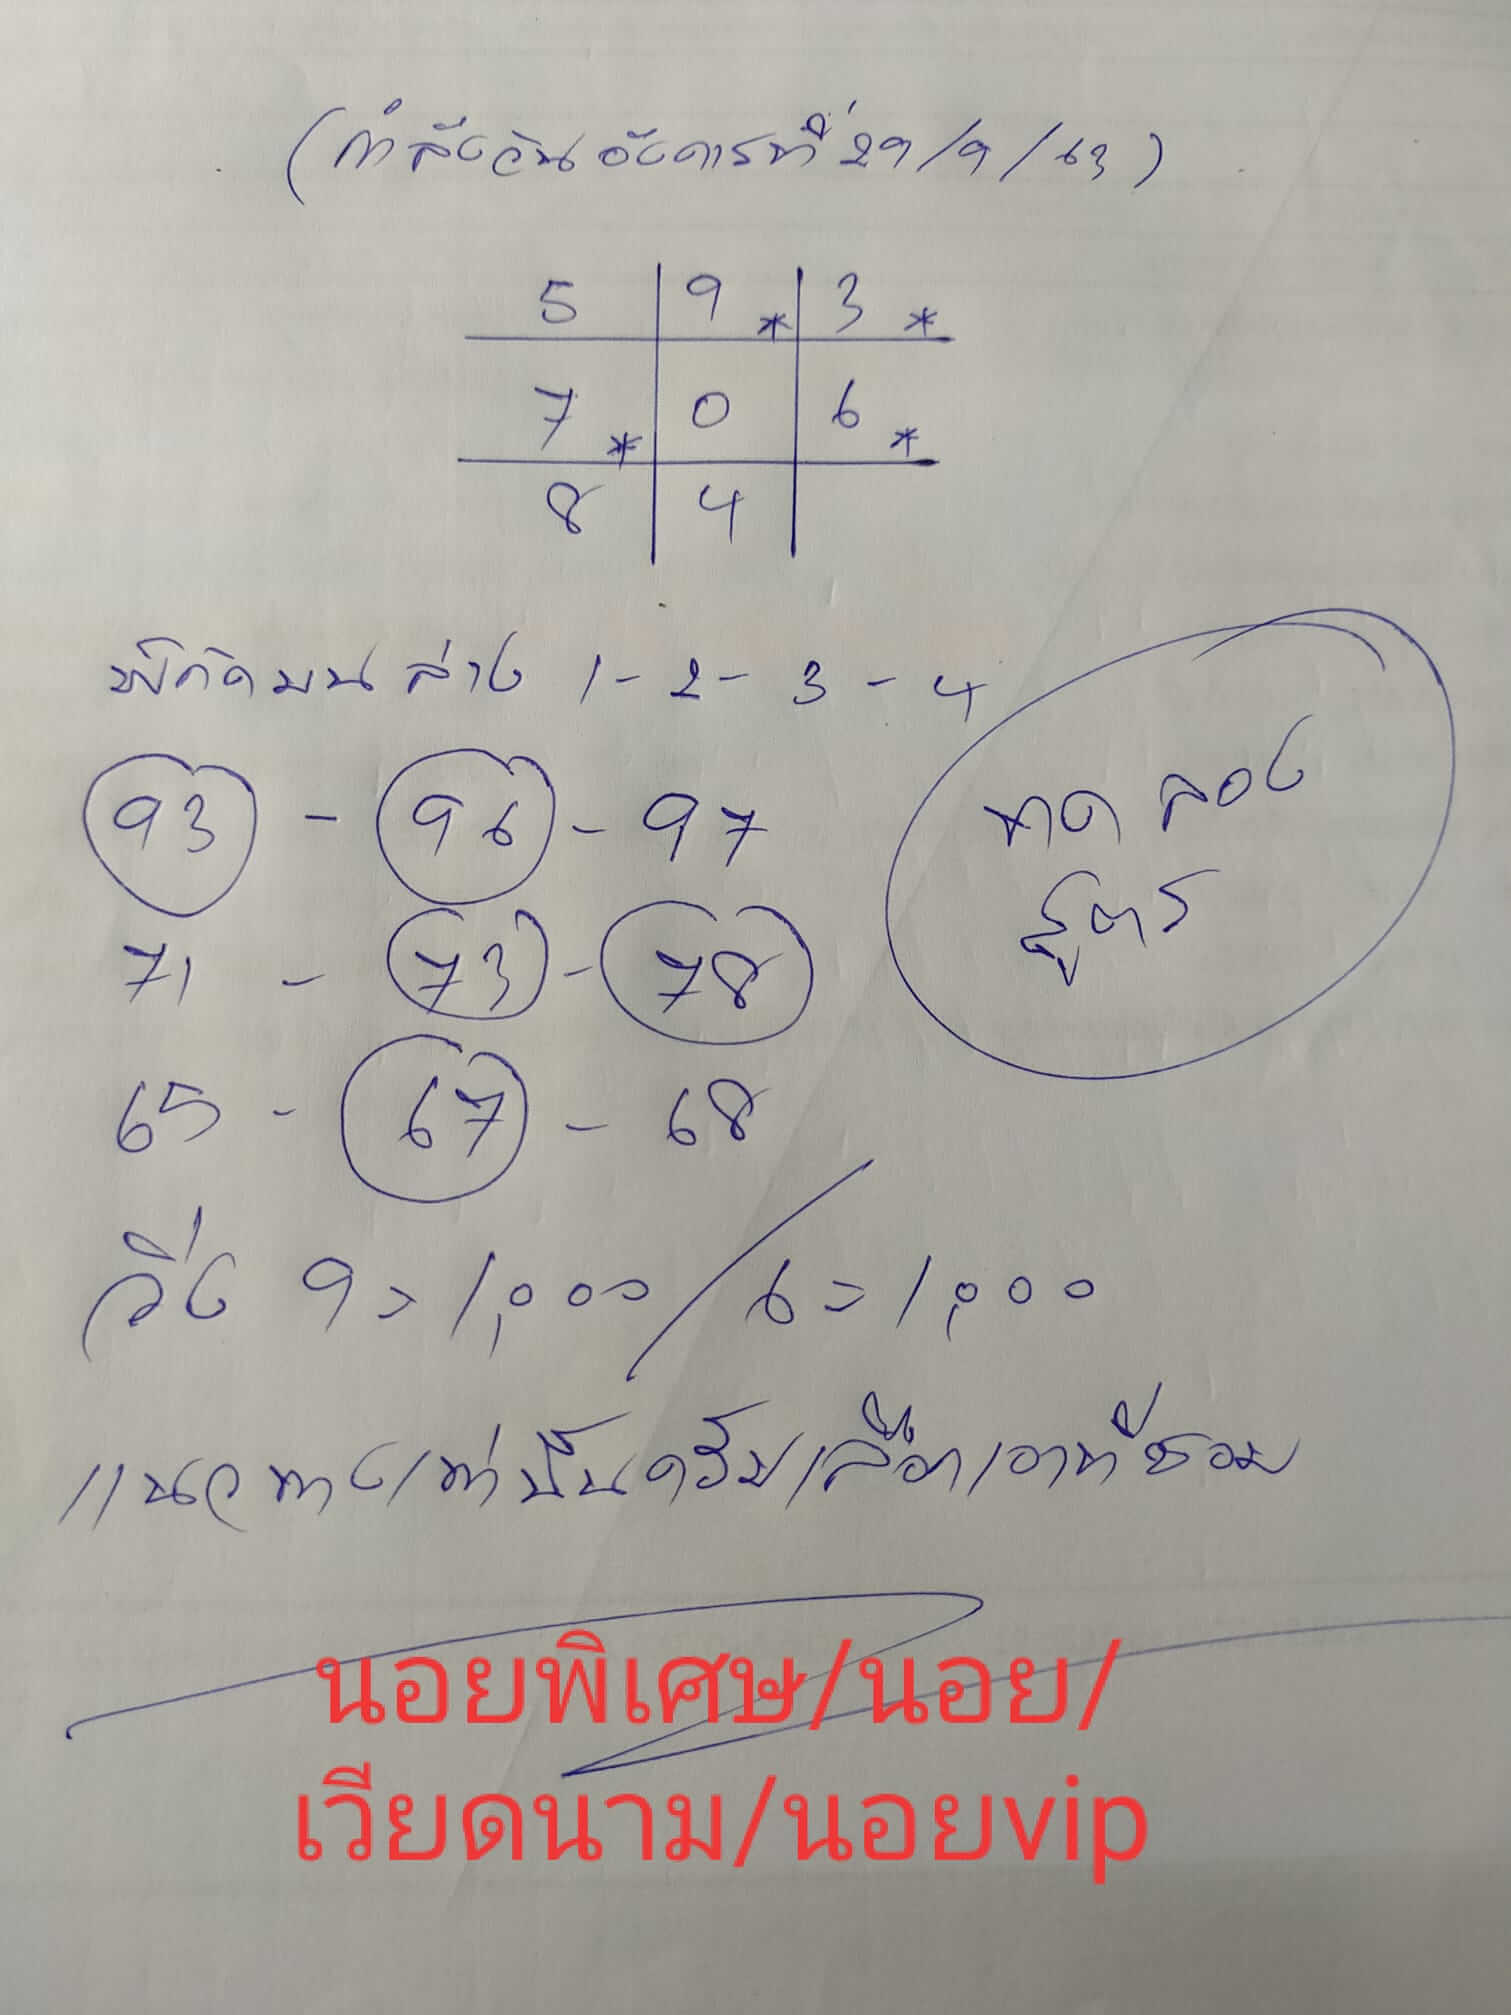 (กำลังวันอังคารที่ 29/9/63)
5 9* 3*
7* 0 6*
8 4
พิกัดบนล่าง 1-2-3-4
93 - 96 - 97
71 - 73 - 78
65 - 67 - 68
ทดลอง
สูตร
วิ่ง 9=1,000/6=1,000
แนวทางเท่านั้นครับเลือกเอาที่ชอบ
นอยพิเศษ/นอย/
เวียดนาม/นอยvip